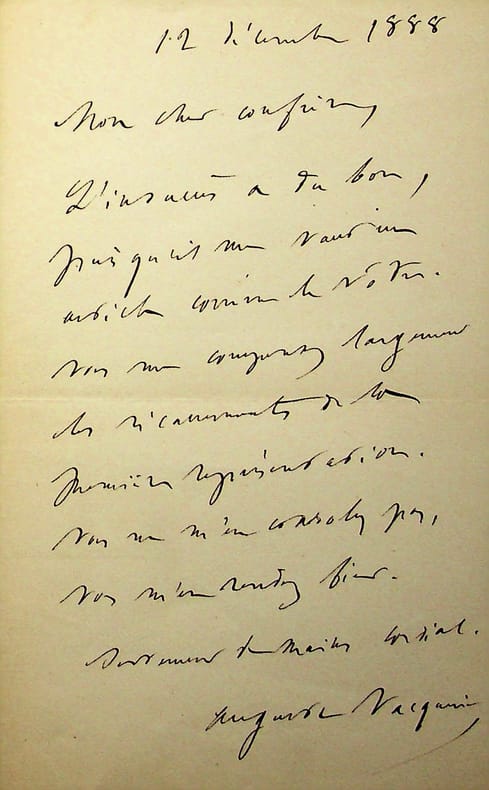 12 décembre 1888
Mon cher confrère,
L'insuccès a du bon,
puisqu'il me vaut un
article comme le vôtre.
Vous me compensez largement
les ricanements de la
première représentation.
Vous ne m'en consolez pas,
vous m'en rendez fier.
Serrement de mains cordial.
Auguste Vacquerie